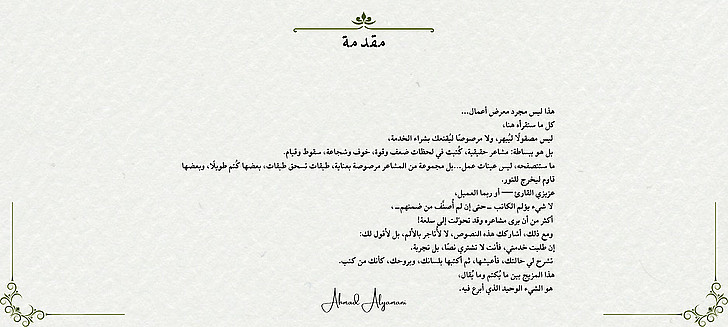 مقدمة
هذا ليس مجرد معرض أعمال...
كل ما ستقرأه هنا،
ليس مصقولًا ليُبهر، ولا مرصوصًا ليُقنعك بشراء الخدمة،
بل هو ببساطة: مشاعر حقيقية، كُتبت في لحظات ضعف وقوة، خوف وشجاعة، سقوط وقيام.
ما ستتصفحه، ليس عينات عمل...بل مجموعة من المشاعر مرصوصة بعناية، طبقات تسحق طبقات، بعضها كُتم طويلًا، وبعضها
قاوم ليخرج للنور.
عزيزي القارئ — أو ربما العميل،
لا شيء يؤلم الكاتب – حتى إن لم أُصنَّف من ضمنهم–،
أكثر من أن يرى مشاعره وقد تحوّلت إلى سلعة!
ومع ذلك، أشاركك هذه النصوص، لا لأتاجر بالألم، بل لأقول لك:
إن طلبت خدمتي، فأنت لا تشتري نصًا، بل تجربة.
تشرح لي حالتك، فأعيشها، ثم أكتبها بلسانك، وبروحك، كأنك من كتب.
هذا المزيج بين ما يُكتم وما يُقال،
هو الشيء الوحيد الذي أبرع فيه.
Ahmad Alyamani